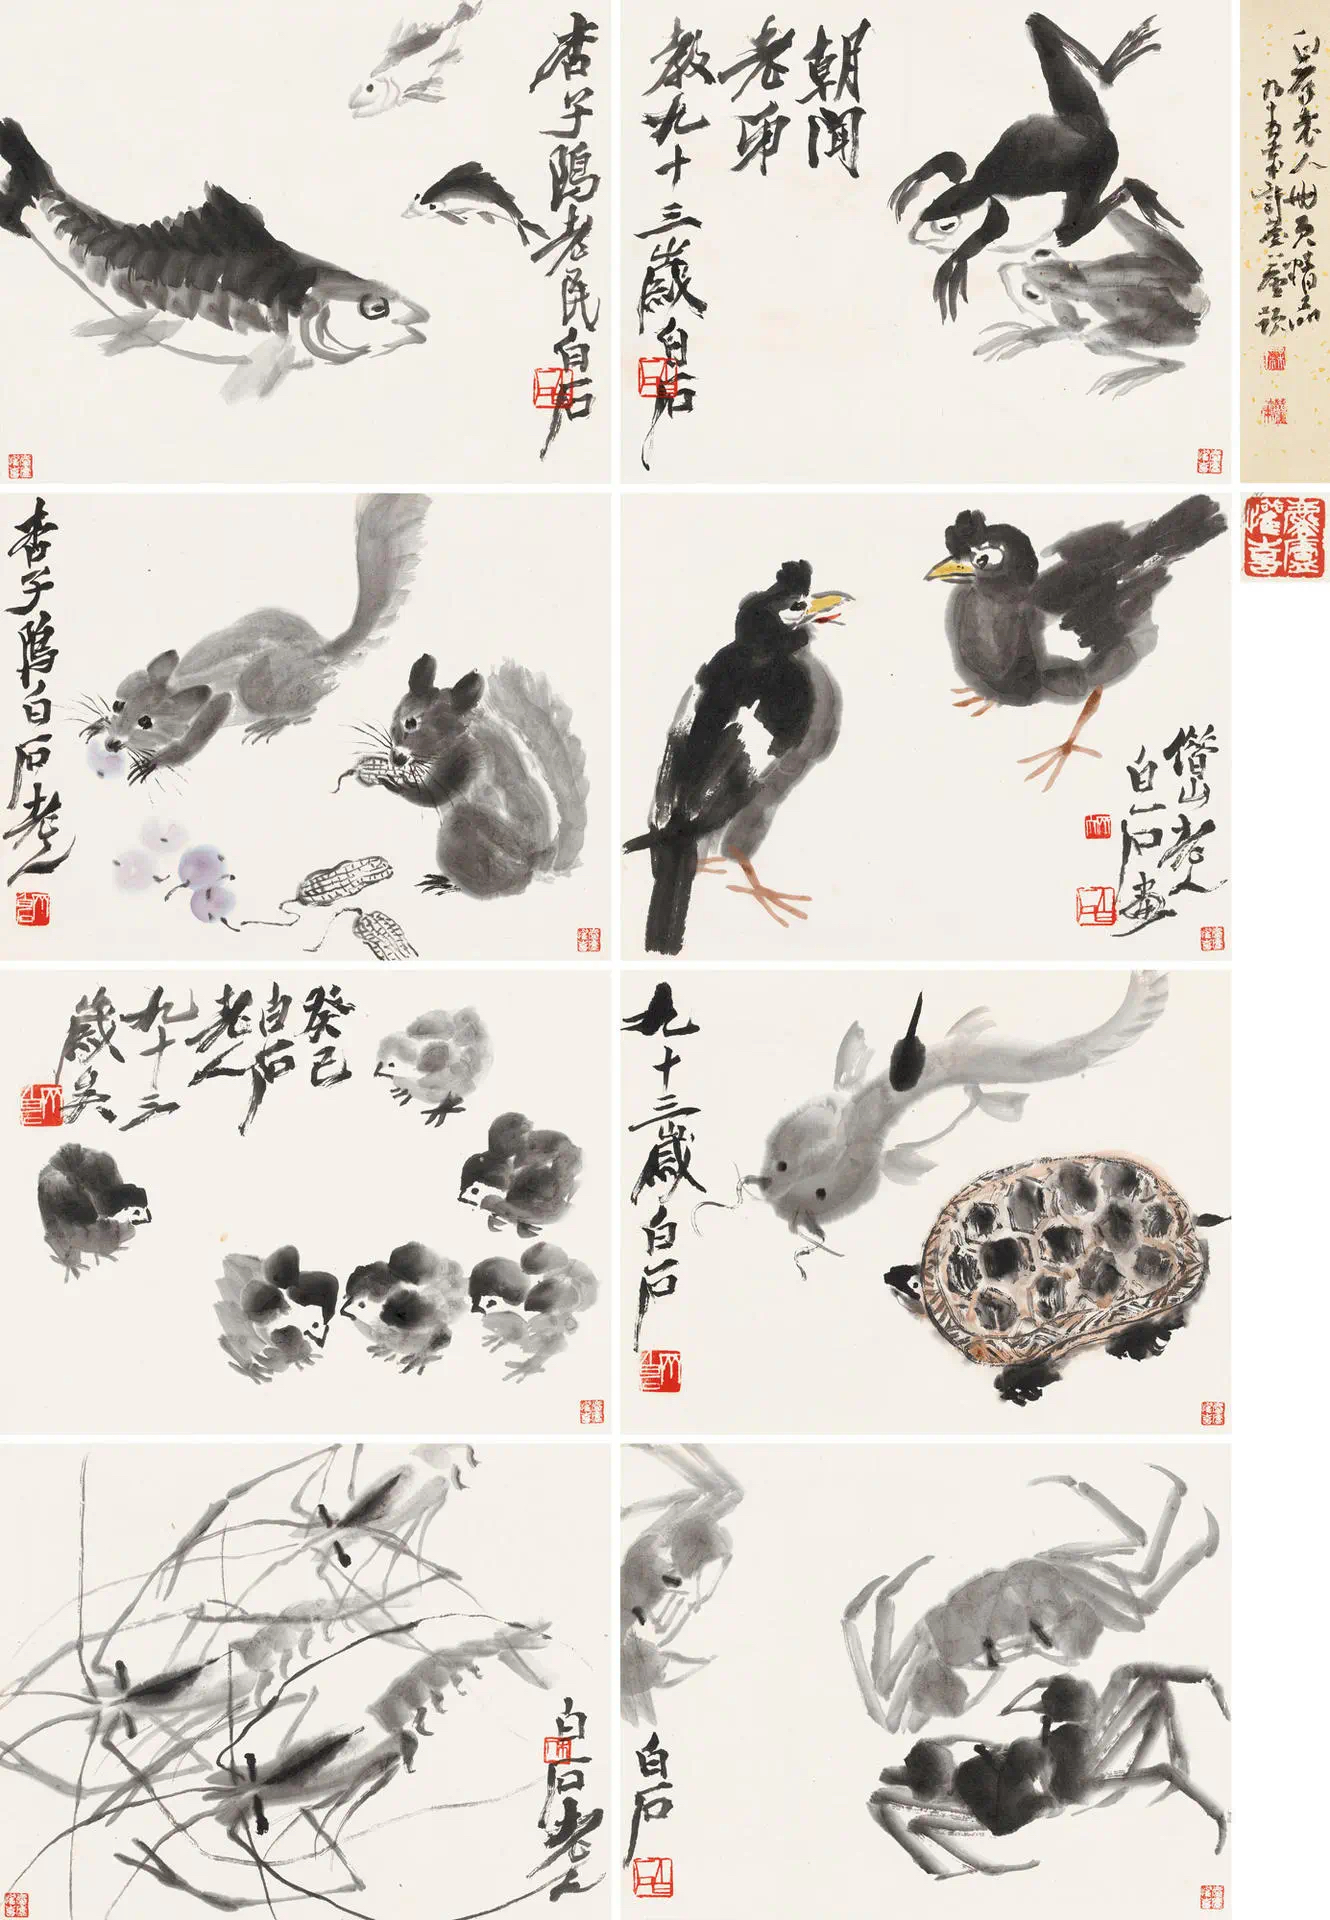 杏子隖老民白石
朝聞
老弟
教九十三歲白石
白石老人冊頁精品
杏子隖白石老人
借山老人
白石畫
癸巳
白石
老人
九十三
歲矣
九十三歲白石
白石老人
白石